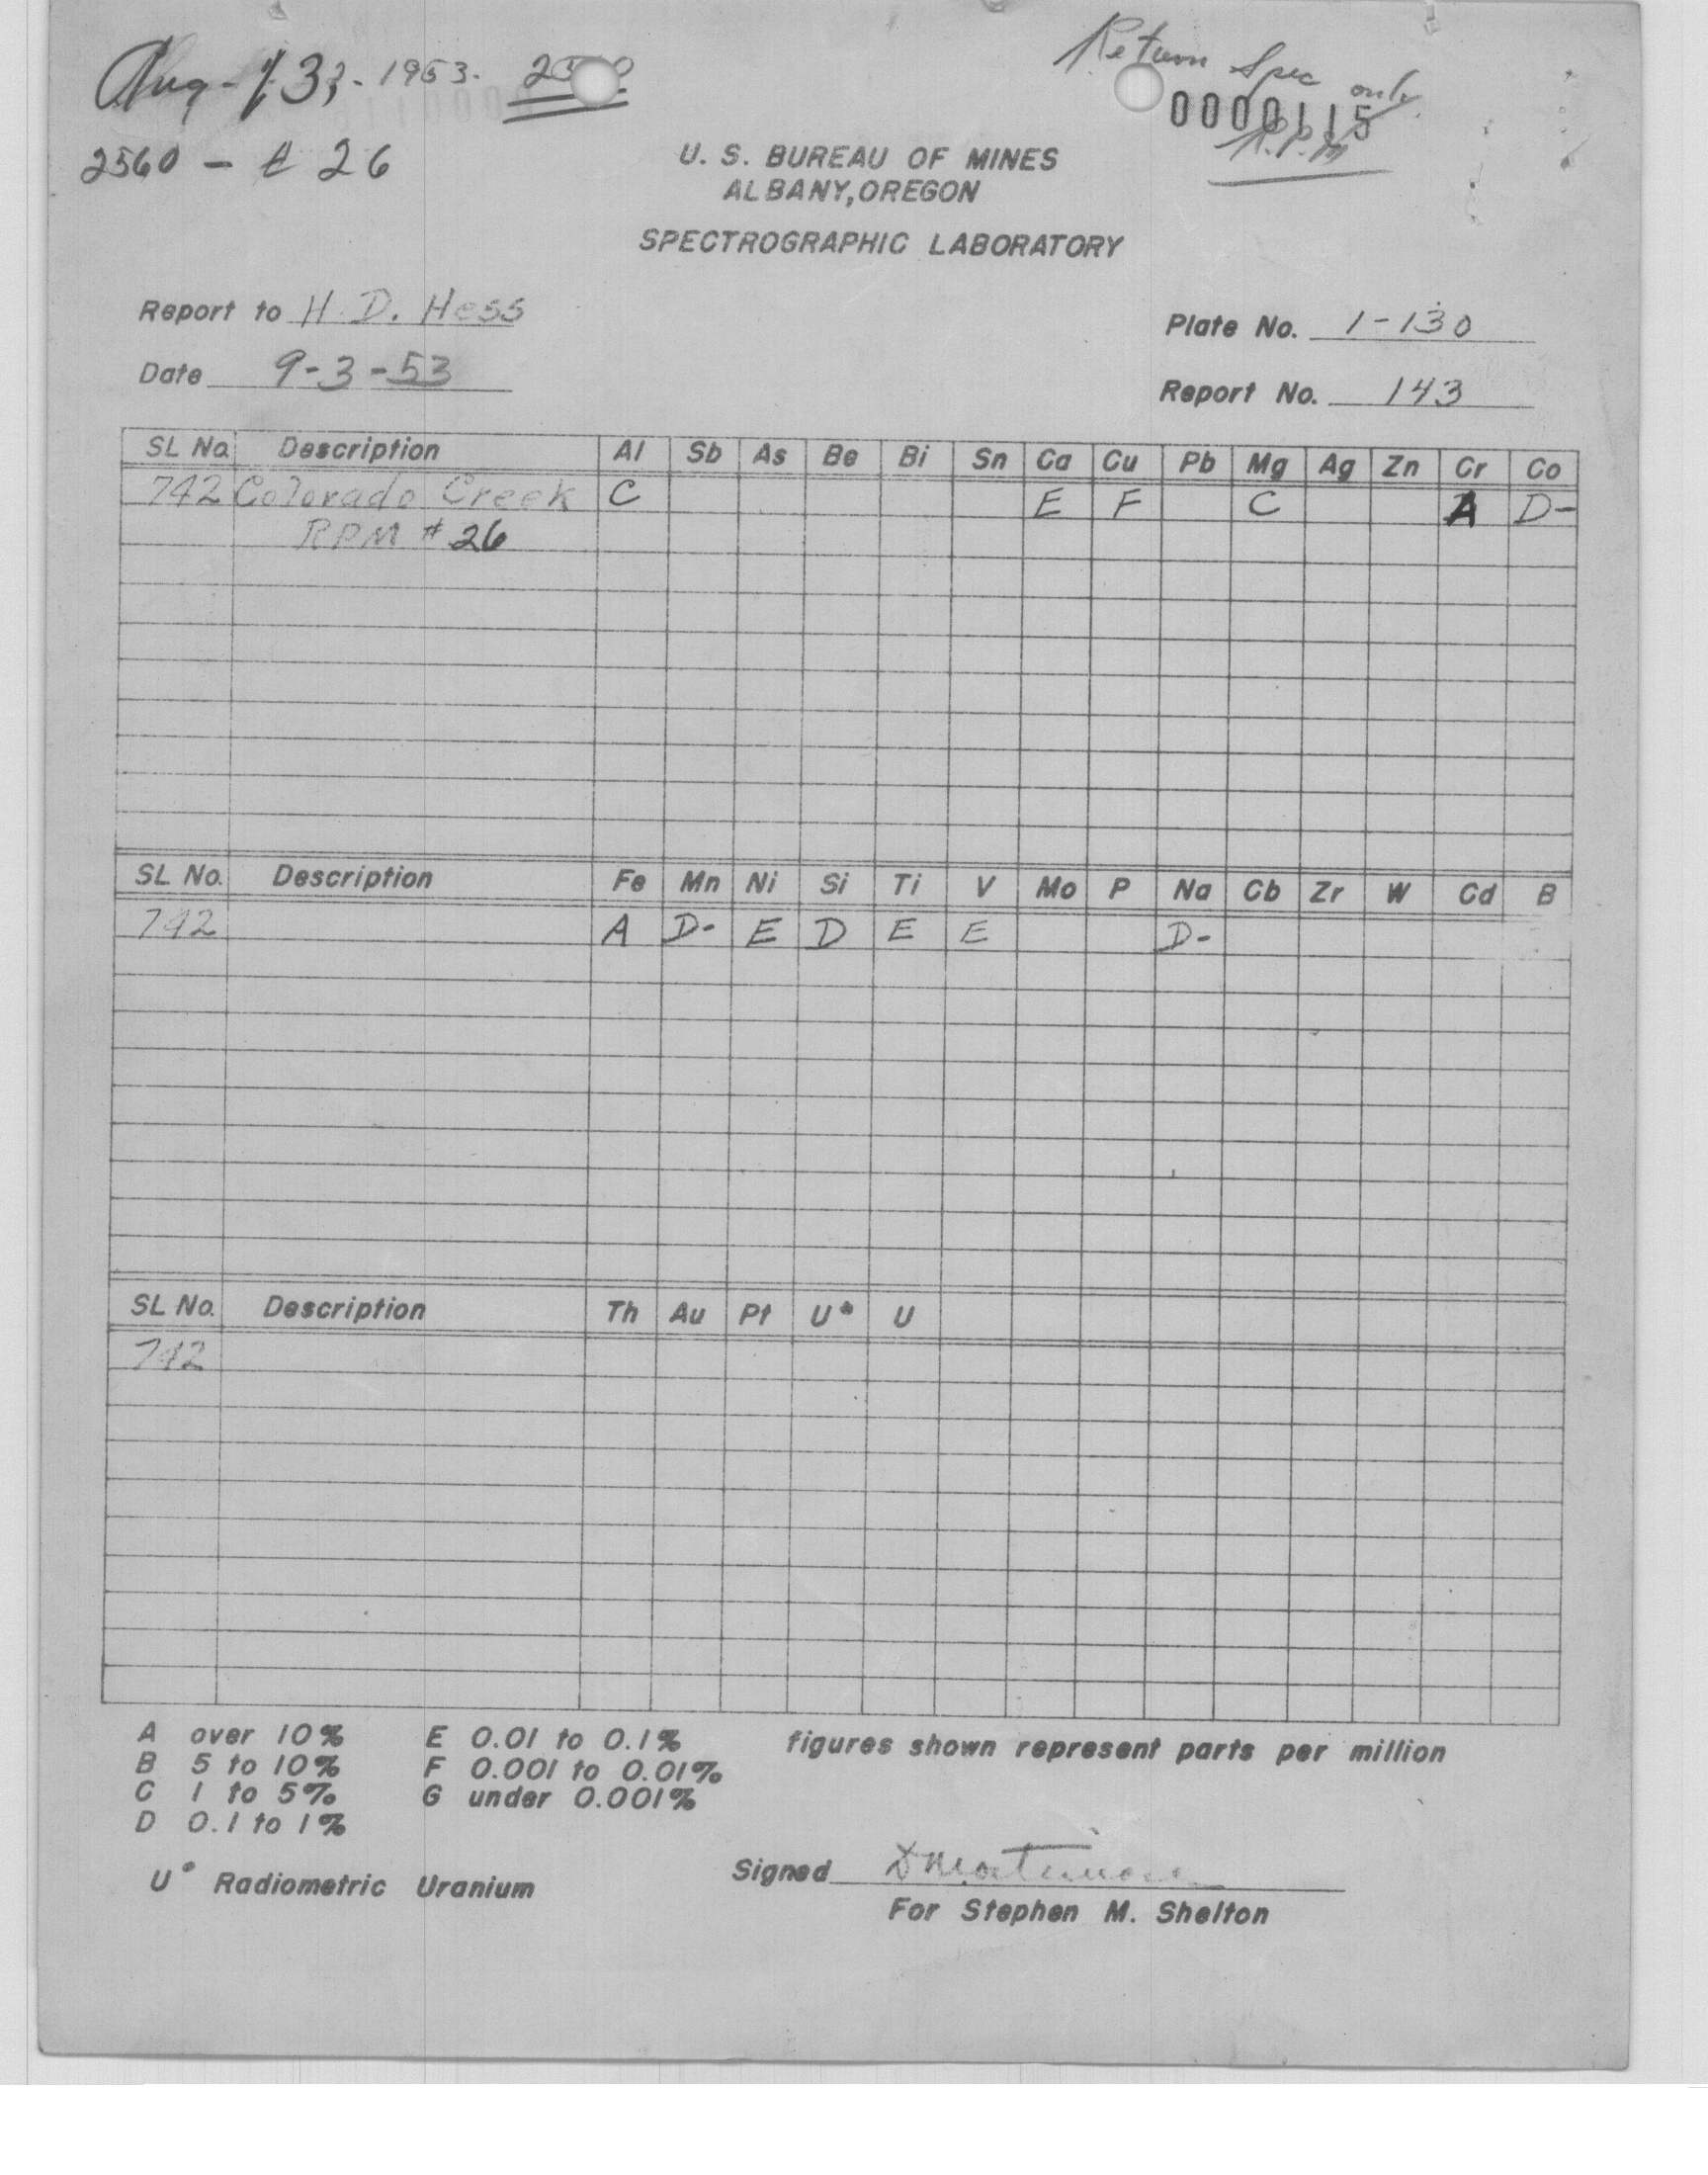 Aug - 13, - 1953.
Return Spec only.
0000115
R.P.M
2560 - # 26
U. S. BUREAU OF MINES
ALBANY, OREGON
SPECTROGRAPHIC LABORATORY
Report to H. D. Hess
Plate No. 1-130
Date 9-3-53
Report No. 143
SL No. Description Al Sb As Be Bi Sn Ca Cu Pb Mg Ag Zn Cr Co
742 Colorado Creek C E F C A D-
RPM # 26
SL No. Description Fe Mn Ni Si Ti V Mo P Na Cb Zr W Cd B
742 A D- E D E E D-
SL No. Description Th Au Pt U* U
742
A over 10% E 0.01 to 0.1% figures shown represent parts per million
B 5 to 10% F 0.001 to 0.01%
C 1 to 5% G under 0.001%
D 0.1 to 1%
U* Radiometric Uranium
Signed
For Stephen M. Shelton